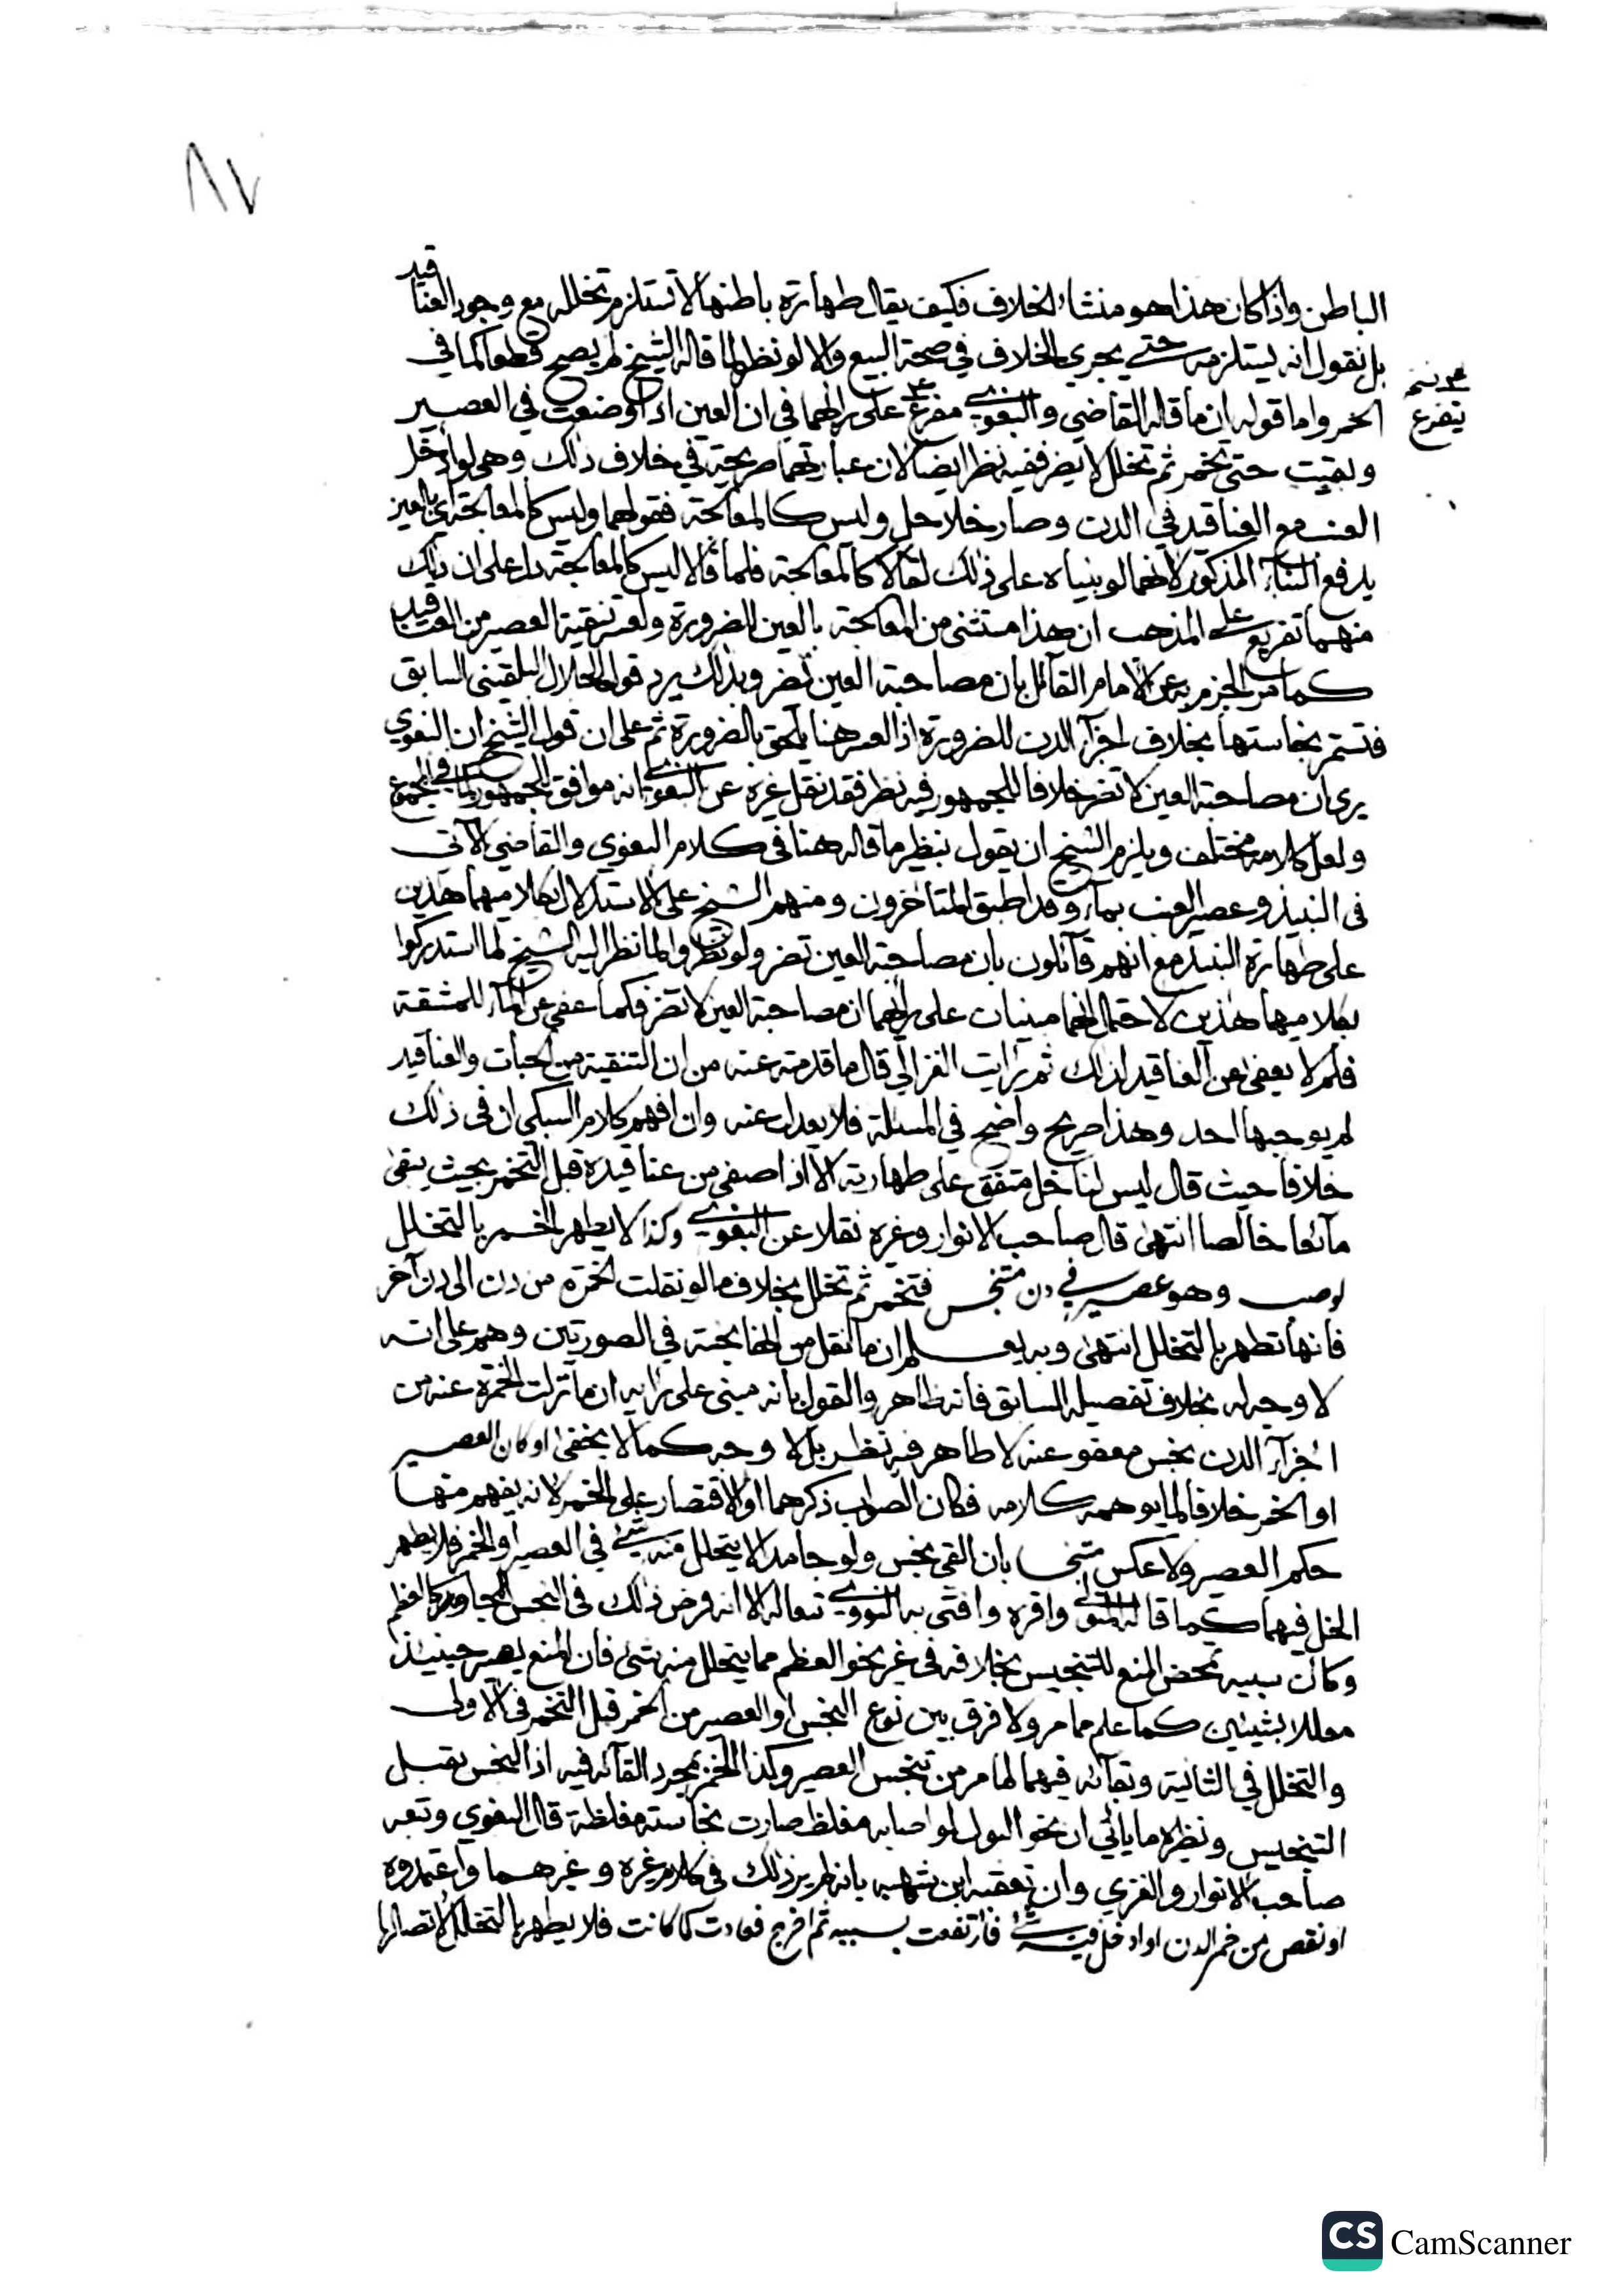 ٨٧
الباطن واذا كان هذا هو منشاء الخلاف فكيف يقال طهارة باطنها لا تستلزم تخلله مع وجود العناقيد
بل نقول انه يستلزمه حتى يجري الخلاف في صحة البيع والا لو نظر لما قاله الشيخ لم يصح قطعا كما في
نسخ
يتفرع
الخمر واما قوله ان ما قاله القاضي والبغوي مفرع على رايهما في ان العين اذا وضعت في العصير
وبقيت حتى تخمر ثم تخلل لا يضر ففيه نظر ايضا لان عبارتهما صريحة في خلاف ذلك وهي لو ادخل
العنب مع العناقيد في الدن وصار خلا حل وليس كالمعالجة فقولهما وليس كالمعالجة اي بالعين
يدفع البناء المذكور لانهما لو بنياه على ذلك لقالا كالمعالجة فلما قالا ليس كالمعالجة دل على ان ذلك
منهما تفريع على المذهب ان هذا مستثنى من المعالجة بالعين للضرورة ولعسر تنقية العصير من العناقيد
كما مر الجزم به عن الامام القائل بان مصاحبة العين تضر وبذلك يرد قول الجلال البلقيني السابق
فتستمر نجاستها بخلاف اجزآء الدن للضرورة اذ العسر هنا يلحق بالضرورة ثم على ان قول الشيخ ان البغوي
يرى ان مصاحبة العين لا تضر خلافا للجمهور فيه نظر فقد نقل غيره عن البغوي انه موافق للجمهور كما في المجموع
ولعل كلامه مختلف ويلزم الشيخ ان يقول نظير ما قاله هنا في كلام البغوي والقاضي الآتي
في النبيذ وعصير العنب بمآء وقد اطبق المتاخرون ومنهم الشيخ على الاستدلال بكلاميهما هذين
على طهارة النبيذ مع انهم قآئلون بان مصاحبة العين تضر ولو نظروا لما نظر اليه الشيخ لما استدركوا
بكلاميهما هذين لاحتمال انهما مبنيان على رايهما ان مصاحبة العين لا تضر فكما عفي عن المآء للمشقة
فلم لا يعفى عن العناقيد لذلك ثم رايت الغزالي قال ما قدمته عنه من ان التنقية من الحبات والعناقيد
لم يوجبها احد وهذا صريح واضح في المسئلة فلا يعدل عنه وان افهم كلام السبكي ان في ذلك
خلافا حيث قال ليس لنا خل متفق على طهارته الا اذا صفي من عناقيده قبل التخمر بحيث يبقى
مآئعا خالصا انتهى قال صاحب الانوار وغيره نقلا عن البغوي وكذا لا يطهر الخمر بالتخلل
لو صب وهو عصير في دن متنجس فتخمر ثم تخلل بخلاف ما لو نقلت الخمرة من دن الى دن آخر
فانها تطهر بالتخلل انتهى وبه يعلم ان ما نقل من الخا بخته في الصورتين وهم على انه
لا وجه له بخلاف تفصيله السابق فانه ظاهر والقول بانه مبني على رايه ان ما نزلت الخمرة عنه من
اجزآء الدن نجس معفو عنه لا طاهر فيه نظر بل لا وجه كما لا يخفى او كان العصير
او الخمر خلافا لما يوهمه كلامه فكان الصواب ذكرهما او الاقتصار على الخمر لانه يفهم منها
حكم العصير ولا عكس متنجسا بان القي نجس ولو جامدا لا يتحلل منه شئ في العصير او الخمر فلا يطهر
الخل فيهما كما قاله المتولي واقره وافتى به النووي تبعا له الا انه فرض ذلك في النجس المجاور كالعظم
وكان سببه تمحض المنع للتنجيس بخلافه في غير نحو العظم مما يتحلل منه شئ فان المنع يصير حينئذ
معللا بشيئين كما علم مما مر ولا فرق بين نزع النجس او العصير من الخمر قبل التخمر في الاولى
والتخلل في الثانية وبقآئه فيهما لما مر من تنجس العصير وكذا الخمر بمجرد القآئه فيه اذ النجس يقبل
التنجيس ونظيره ما ياتي ان نحو البول لو اصابه مغلظ صارت نجاسته مغلظة قال البغوي وتبعه
صاحب الانوار والغزي وان تعقبه ابن شهبه بانه لم ير ذلك في كلام غيره وغيرهما واعتمدوه
او نقص من خمر الدن او ادخل فيه شئ فارتفعت بسببه ثم اخرج فعادت كما كانت فلا يطهر بالتخلل لاتصالها
CS CamScanner